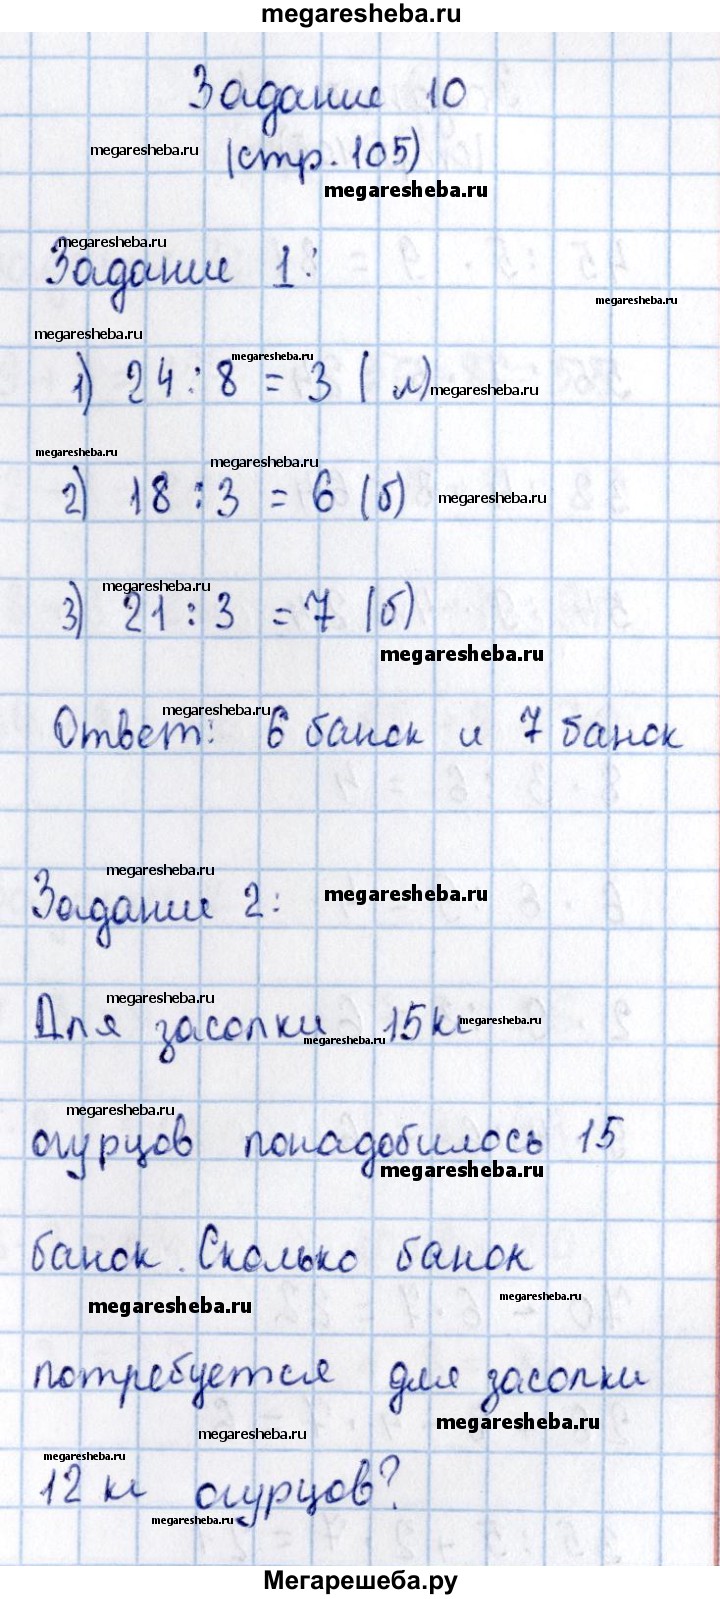 megaresheba.ru
Задание 10
megaresheba.ru
(стр. 105)
megaresheba.ru
megaresheba.ru
Задание 1:
megaresheba.ru
megaresheba.ru
megaresheba.ru
1) 24 : 8 = 3 (л)
megaresheba.ru
megaresheba.ru
megaresheba.ru
2) 18 : 3 = 6 (б)
megaresheba.ru
megaresheba.ru
3) 21 : 3 = 7 (б)
megaresheba.ru
megaresheba.ru
Ответ: 6 банок и 7 банок
megaresheba.ru
megaresheba.ru
Задание 2:
megaresheba.ru
Для засолки 15 кг
megaresheba.ru
megaresheba.ru
megaresheba.ru
огурцов понадобилось 15
megaresheba.ru
банок. Сколько банок
megaresheba.ru
megaresheba.ru
потребуется для засолки
megaresheba.ru
megaresheba.ru
megaresheba.ru
12 кг огурцов?
megaresheba.ru
Мегарешеба.ру